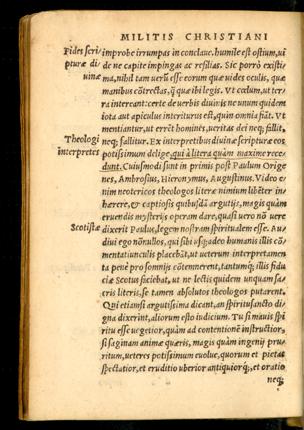 MILITIS CHRISTIANI
Fides scri
pturæ di
uinæ
improbe irrumpas in conclaue. humile est ostium, ui
de ne capite impingas ac resilias. Sic porrò existi
ma, nihil tam uerũ esse eorum quæ uides oculis, quæ
manibus cõtrectas, q̃ quæ ibi legis. Vt cœlum, ut ter
ra intercant: certe de uerbis diuinis ne unum quidem
iota aut apiculus interiturus est, quin omnia fiãt. Vt
mentiantur, ut errẽt homines, ueritas dei neq; fallit,
Theologi
interpretes
neq; fallitur. Ex interpretibus diuinæ scripturæ eos
potissimum delige, qui à litera quàm maxime rece
dunt. Cuiusmodi sunt in primis post Paulum Orige
nes, Ambrosius, Hieronymus, Augustinus. Video e
nim neotericos theologos literæ nimium libẽter in
hærere, & captiosis quibusdã argutijs, magis quàm
eruendis mysterijs operam dare, quasi uero nõ uere
Scotistæ
dixerit Paulus, legem nostram spiritualem esse. Au
diui ego nõnullos, qui sibi usq;adeo humanis illis cõ
mentatiunculis placebãt, ut ueterum interpretamen
ta pene pro somnijs cõtemnerent, tantumq; illis fidu
ciæ Scotus faciebat, ut ne lectis quidem unquam sa
cris literis, se tamen absolutos theologos putarent.
Qui etiamsi argutissima dicant, an spiritusancto di
gna dixerint, aliorum esto iudicium. Tu si mauis spi
ritu esse uegetior, quàm ad contentionẽ instructior,
si saginam animæ quæris, magis quàm ingenij pru
ritum, ueteres potissimum euolue, quorum et pietas
spectatior, et eruditio uberior antiquiorq́;, et oratio
neq;